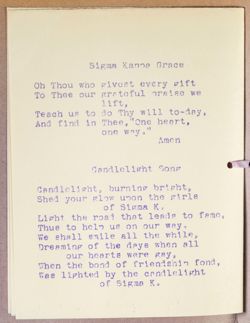 Sigma Kappa Grace
Oh Thou who givest every gift
To Thee our grateful praise we
lift,
Teach us to do Thy will to-day,
And find in Thee,"One heart,
one way."
Amen
Candlelight Song
Candlelight, burning bright,
Shed your glow upon the girls
of Sigma K.
Light the road that leads to fame,
Thus to help us on our way.
We shall smile all the while,
Dreaming of the days when all
our hearts were gay,
When the bond of friendship fond,
Was lighted by the candlelight
of Sigma K.